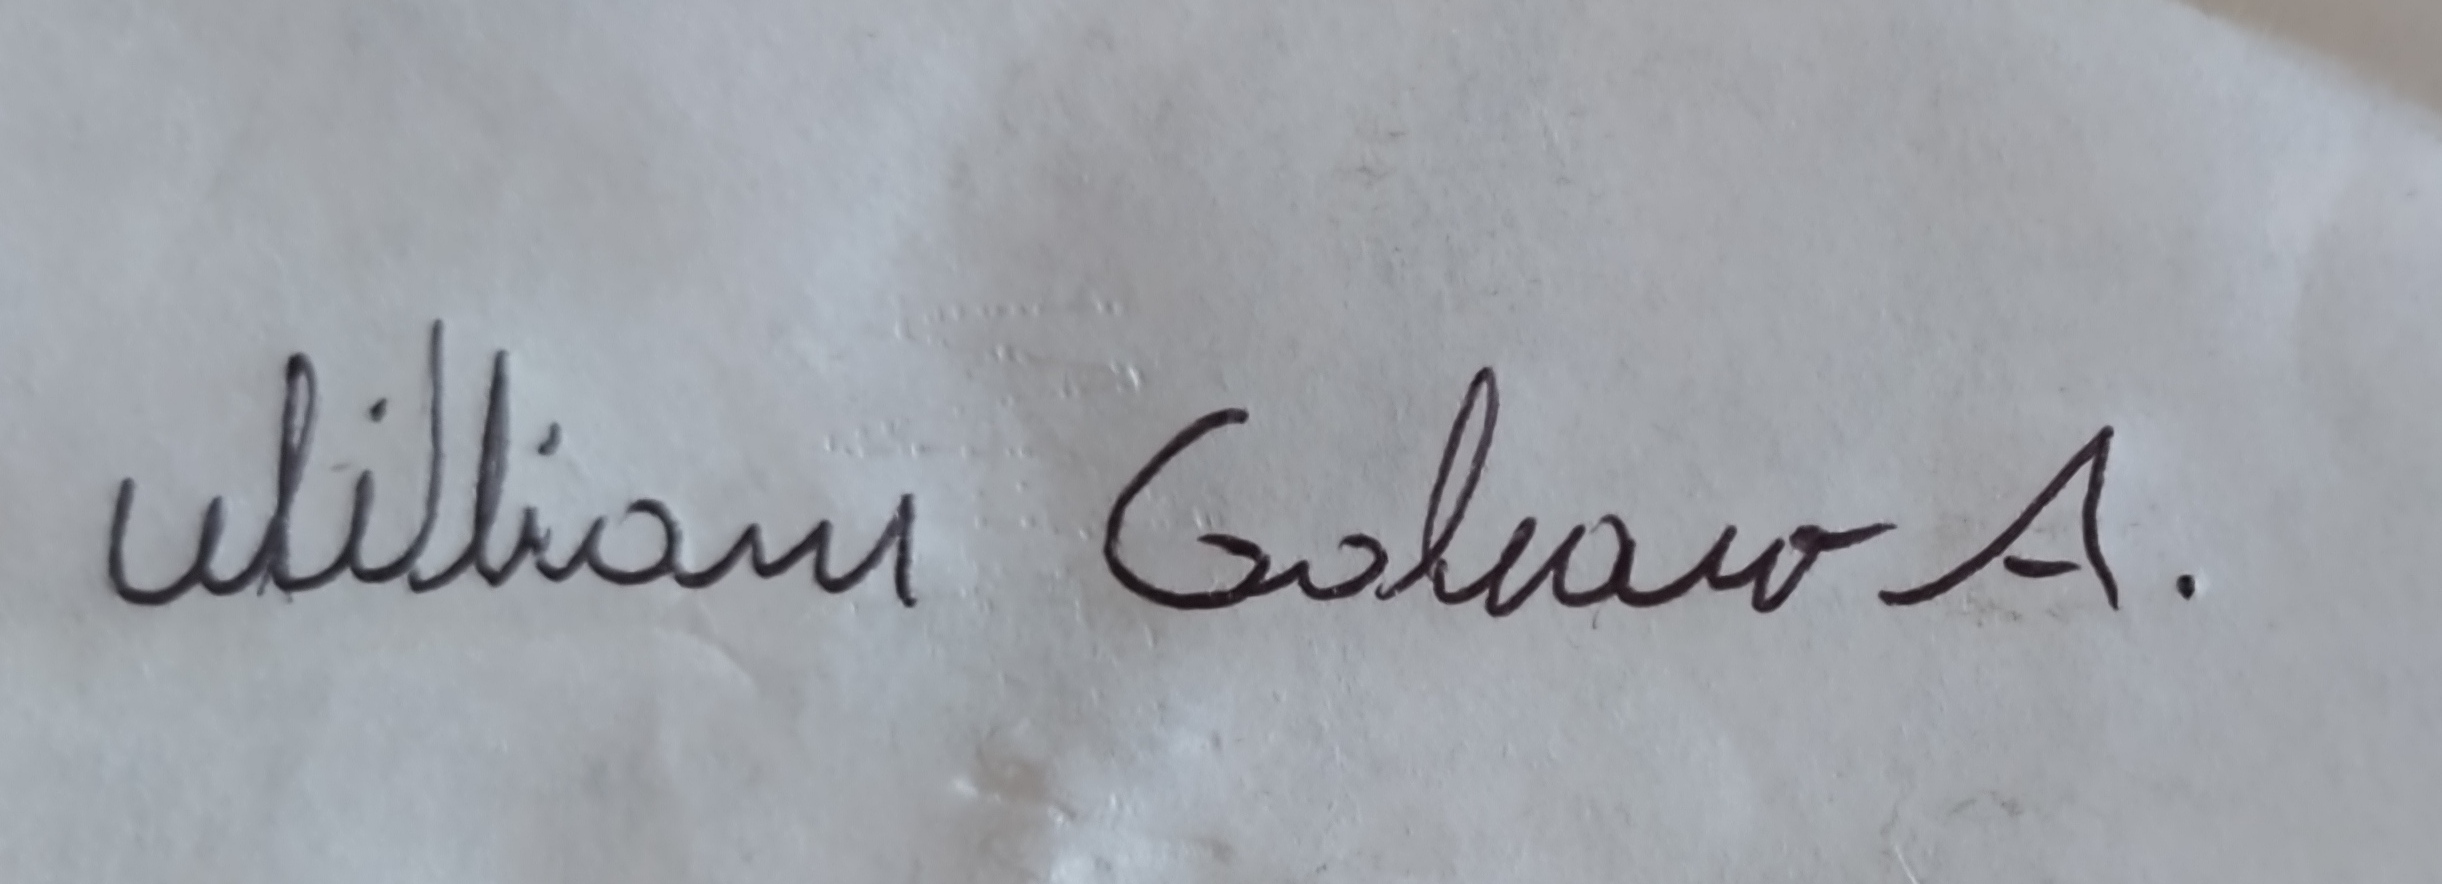 William Galeano A.